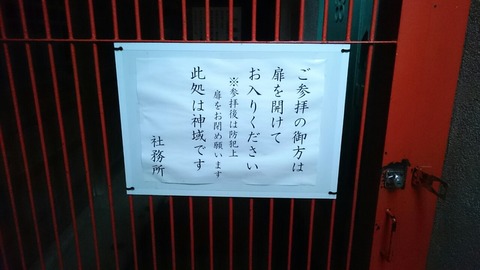 ご参拝の御方は
扉を開けて
お入りください
※参拝後は防犯上
扉をお閉め願います
此処は神域です
社務所